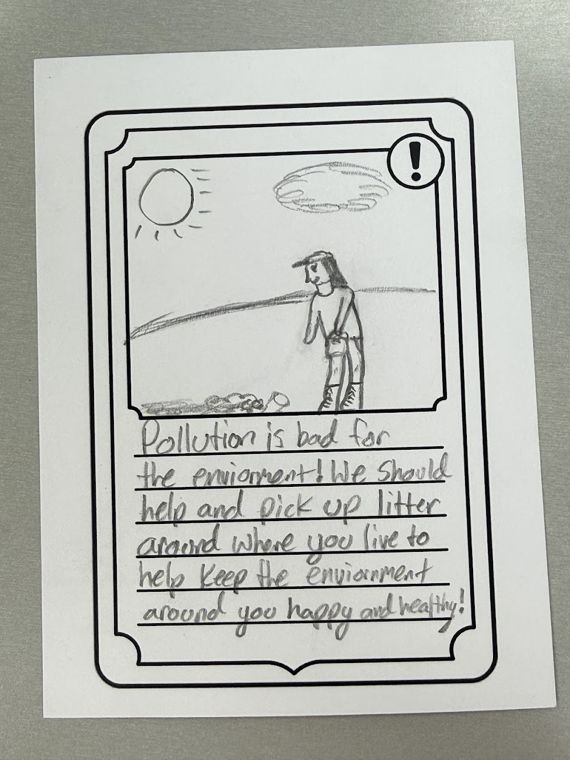 !
Pollution is bad for
the enviornment! We should
help and pick up litter
around where you live to
help keep the enviornment
around you happy and healthy!